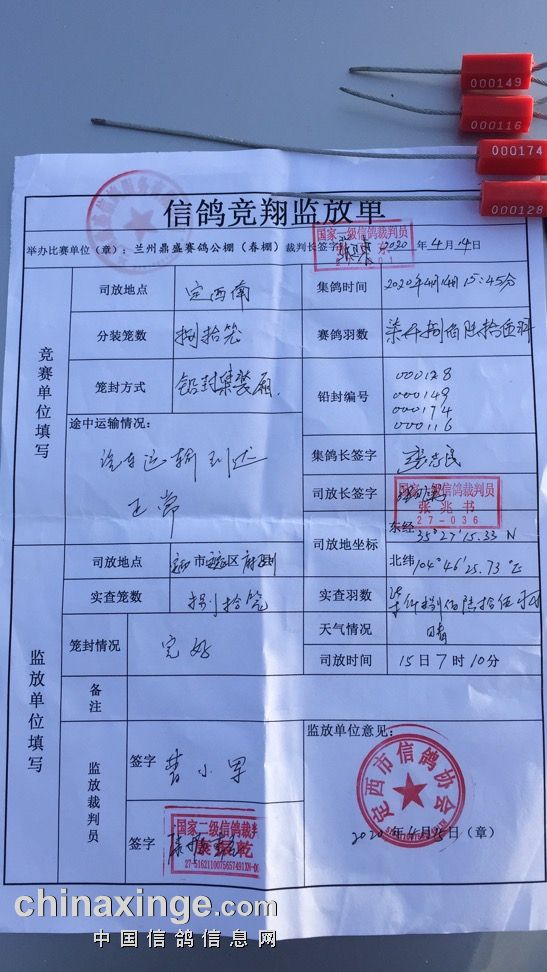 000149
000116
000174
000128
信鸽竞翔监放单
举办比赛单位（章）：兰州鼎盛赛鸽公棚（春棚）裁判长签字 2020年4月14日
国家一级信鸽裁判员
竞赛单位填写
司放地点 定西南 集鸽时间 2020年4月14日15:45分
分装笼数 捌拾笼 赛鸽羽数 柒仟捌佰陆拾伍羽
笼封方式 铅封集装厢 铅封编号 000128
000149
000174
000116
途中运输情况：
汽车运输到达
正常
集鸽长签字
司放长签字
国家一级信鸽裁判员
张兆书
27-036
司放地坐标 东经 35°27′15.33 N
北纬 104°46′25.73 E
监放单位填写
司放地点 市 区
实查笼数 捌拾笼 实查羽数 柒仟捌佰陆拾伍羽
笼封情况 完好 天气情况 晴
司放时间 15日7时10分
备注
监放裁判员
签字 小军
签字
国家二级信鸽裁判
监放单位意见：
定西市信鸽协会
2020年4月15日（章）
chinaxinge.com
中国信鸽信息网